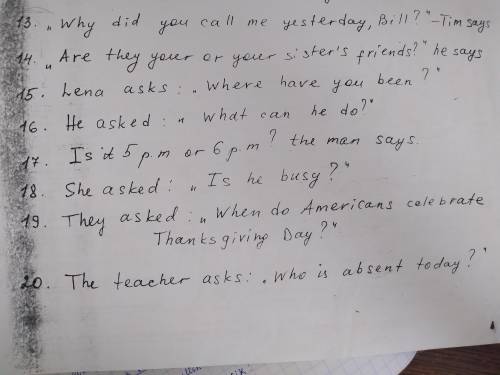 13. „Why did you call me yesterday, Bill?" – Tim says
14. „Are they your or your sister's friends?" he says
15. Lena asks: „Where have you been?"
16. He asked: „What can he do?"
17. Is it 5 p.m or 6 p.m? the man says.
18. She asked: „Is he busy?"
19. They asked: „When do Americans celebrate
Thanksgiving Day?"
20. The teacher asks: „Who is absent today?"